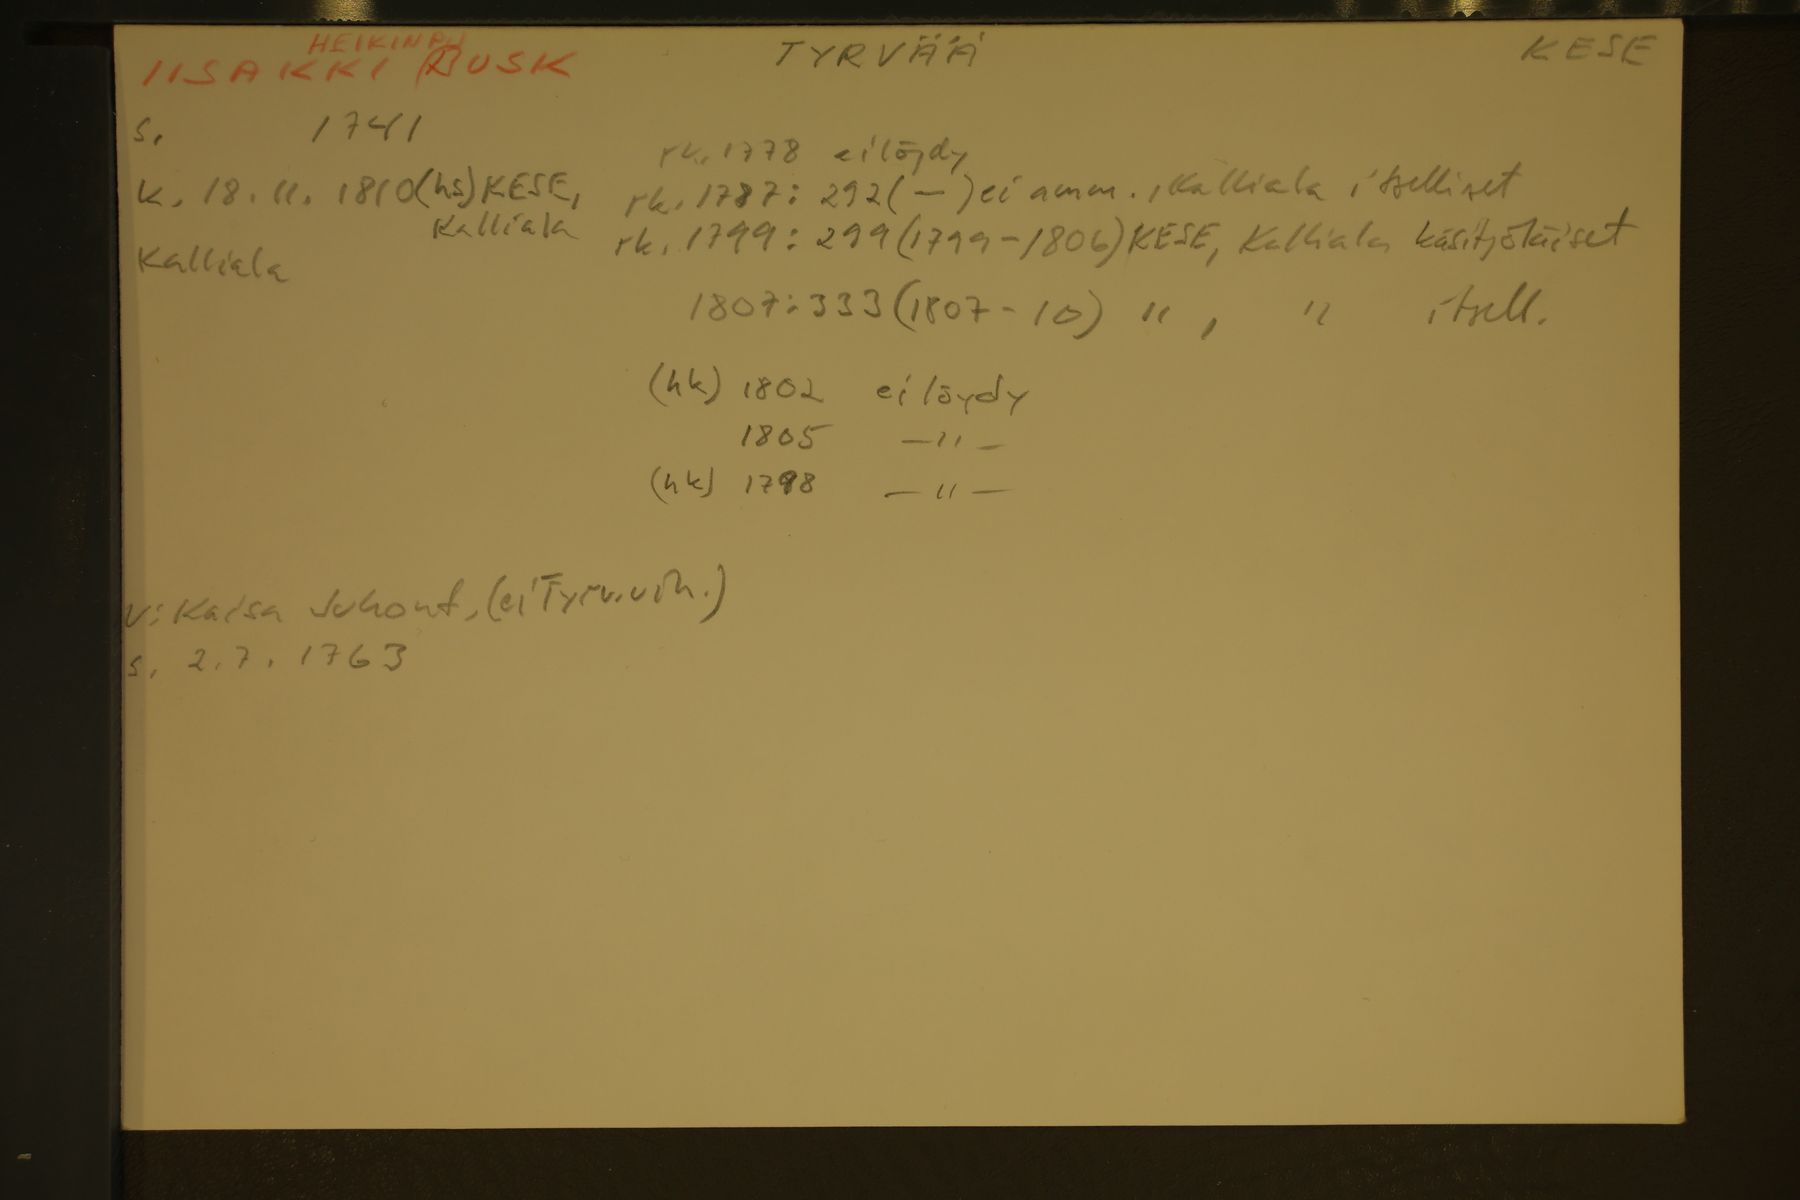 HEIKINP.
IISAKKI RUSK TYRVÄÄ KESE
s. 1741
rk. 1778 ei löydy
k. 18.11. 1810 (hs) KESE, rk. 1787: 292 (—) ei amm., Kalliala itselliset
Kalliala rk. 1799: 299 (1799-1806) KESE, Kalliala käsityöläiset
Kalliala
1807: 333 (1807-10) " , " itsell.
(hk) 1802 ei löydy
1805 —"—
(hk) 1798 —"—
v: Kaisa Juhont. (ei Tyrv. vih.)
s. 2.7. 1763